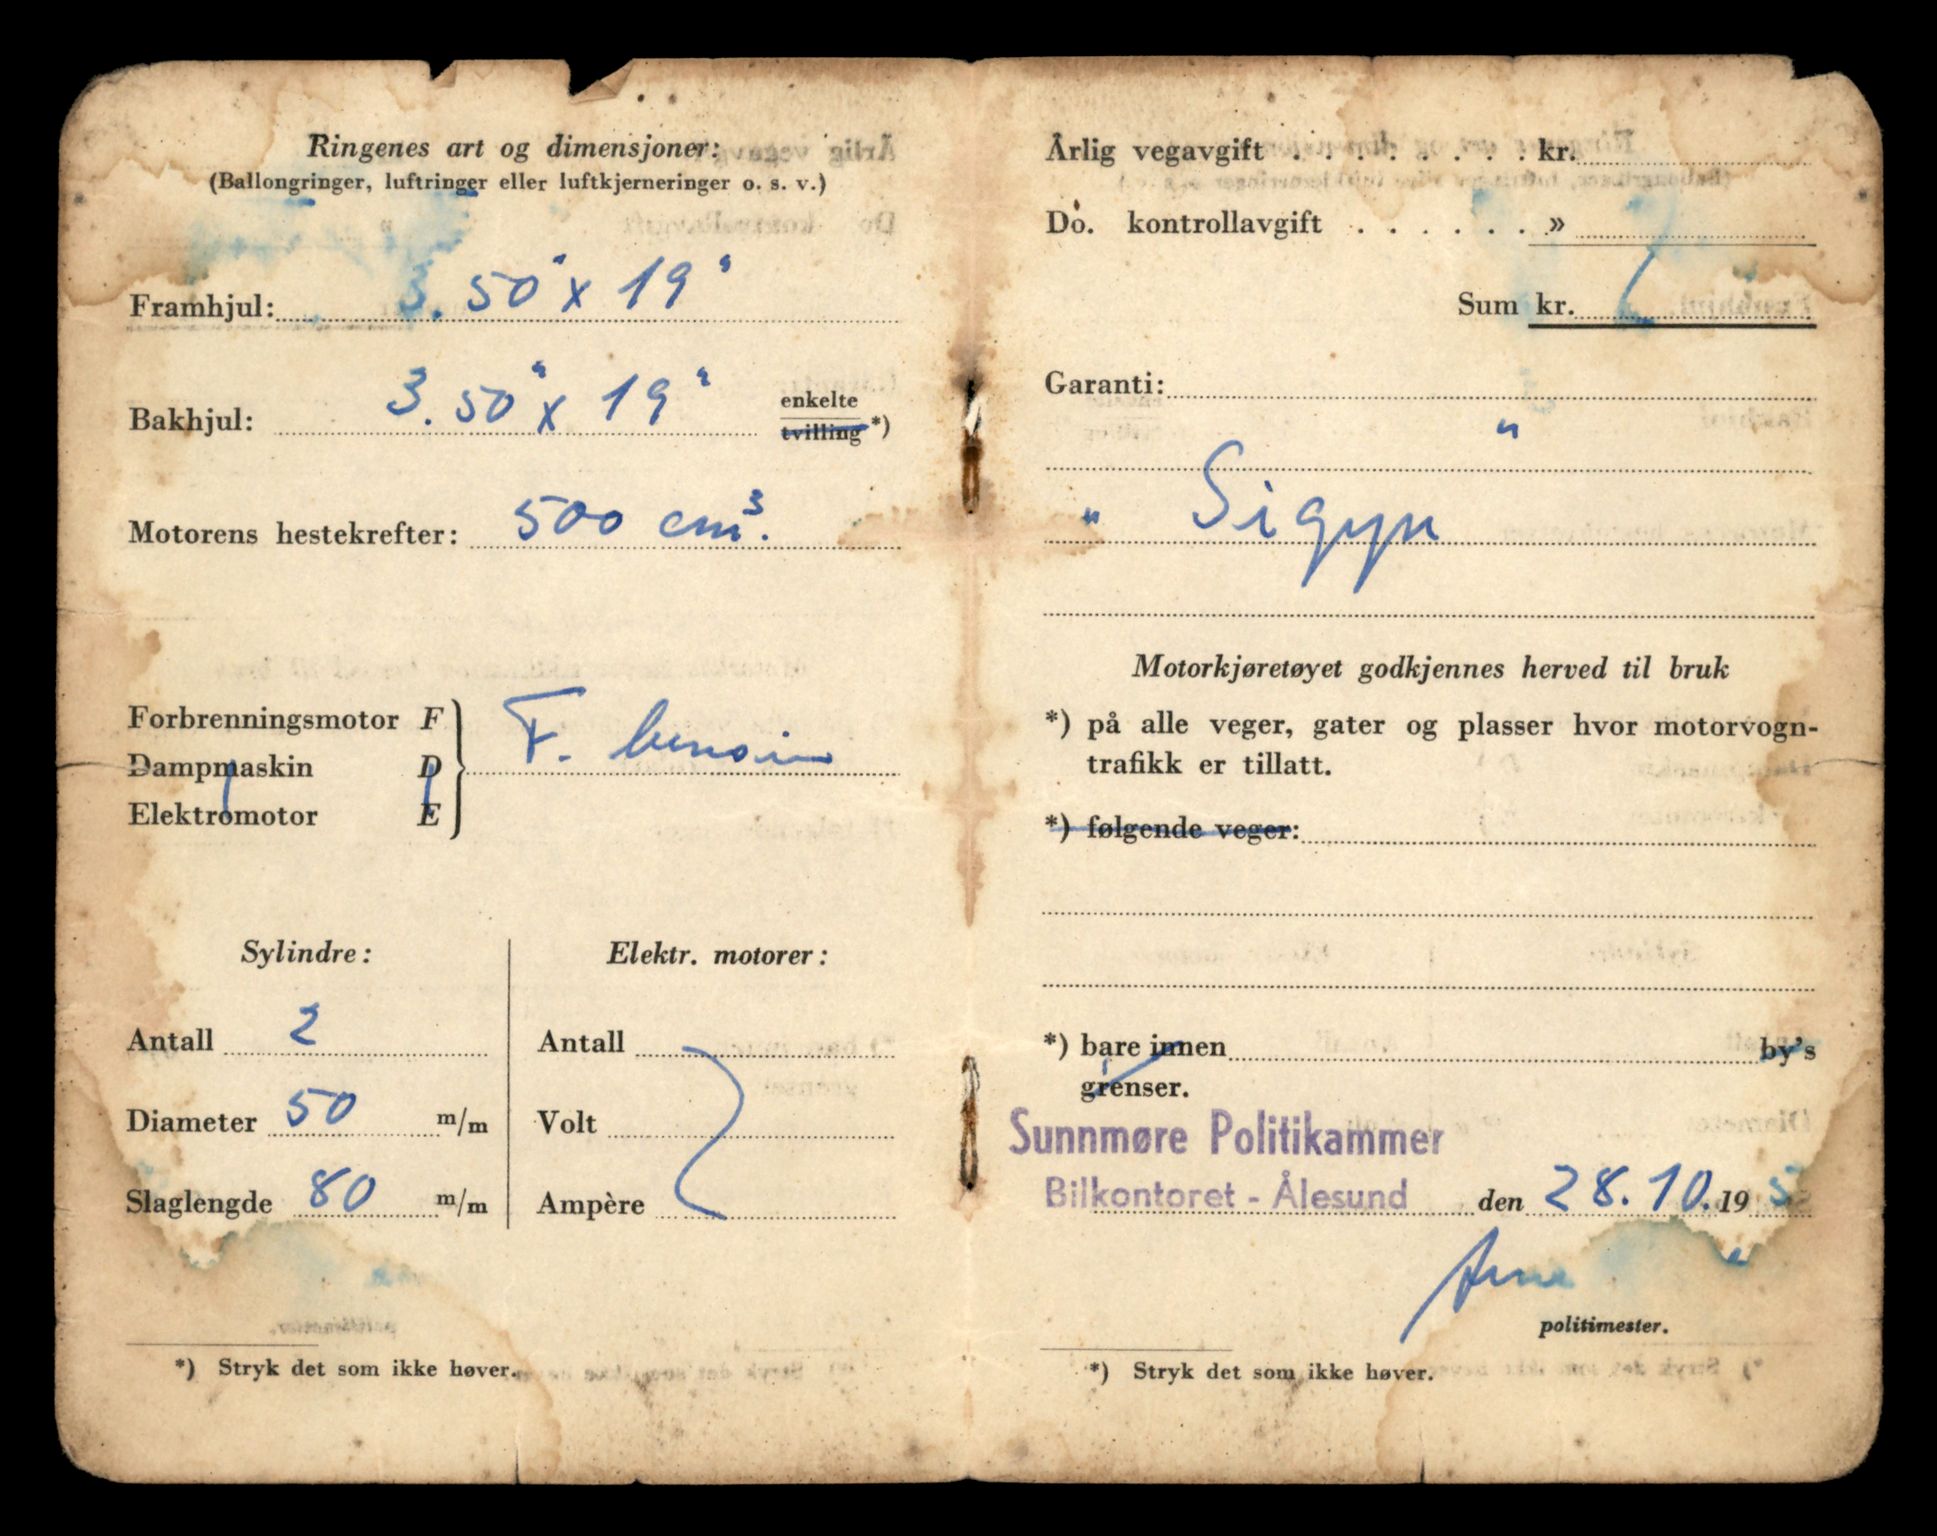 Ringenes art og dimensjoner:
(Ballongringer, luftringer eller luftkjerneringer o. s. v.)
Framhjul: 3.50" x 19"
Bakhjul: 3.50" x 19" enkelte
tvilling *)
Motorens hestekrefter: 500 cm³.
Forbrenningsmotor F
Dampmaskin D
Elektromotor E
F. bensin
Sylindre:
Antall 2
Diameter 50 m/m
Slaglengde 80 m/m
Elektr. motorer:
Antall
Volt
Ampère
*) Stryk det som ikke høver.
Årlig vegavgift . . . . . . . . kr.
Do. kontrollavgift . . . . . . »
Sum kr.
Garanti:
"
" Sigyn
Motorkjøretøyet godkjennes herved til bruk
*) på alle veger, gater og plasser hvor motorvogn-
trafikk er tillatt.
*) følgende veger:
*) bare innen by's
grenser.
Sunnmøre Politikammer
Bilkontoret - Ålesund den 28.10.19 5
Arne
politimester.
*) Stryk det som ikke høver.